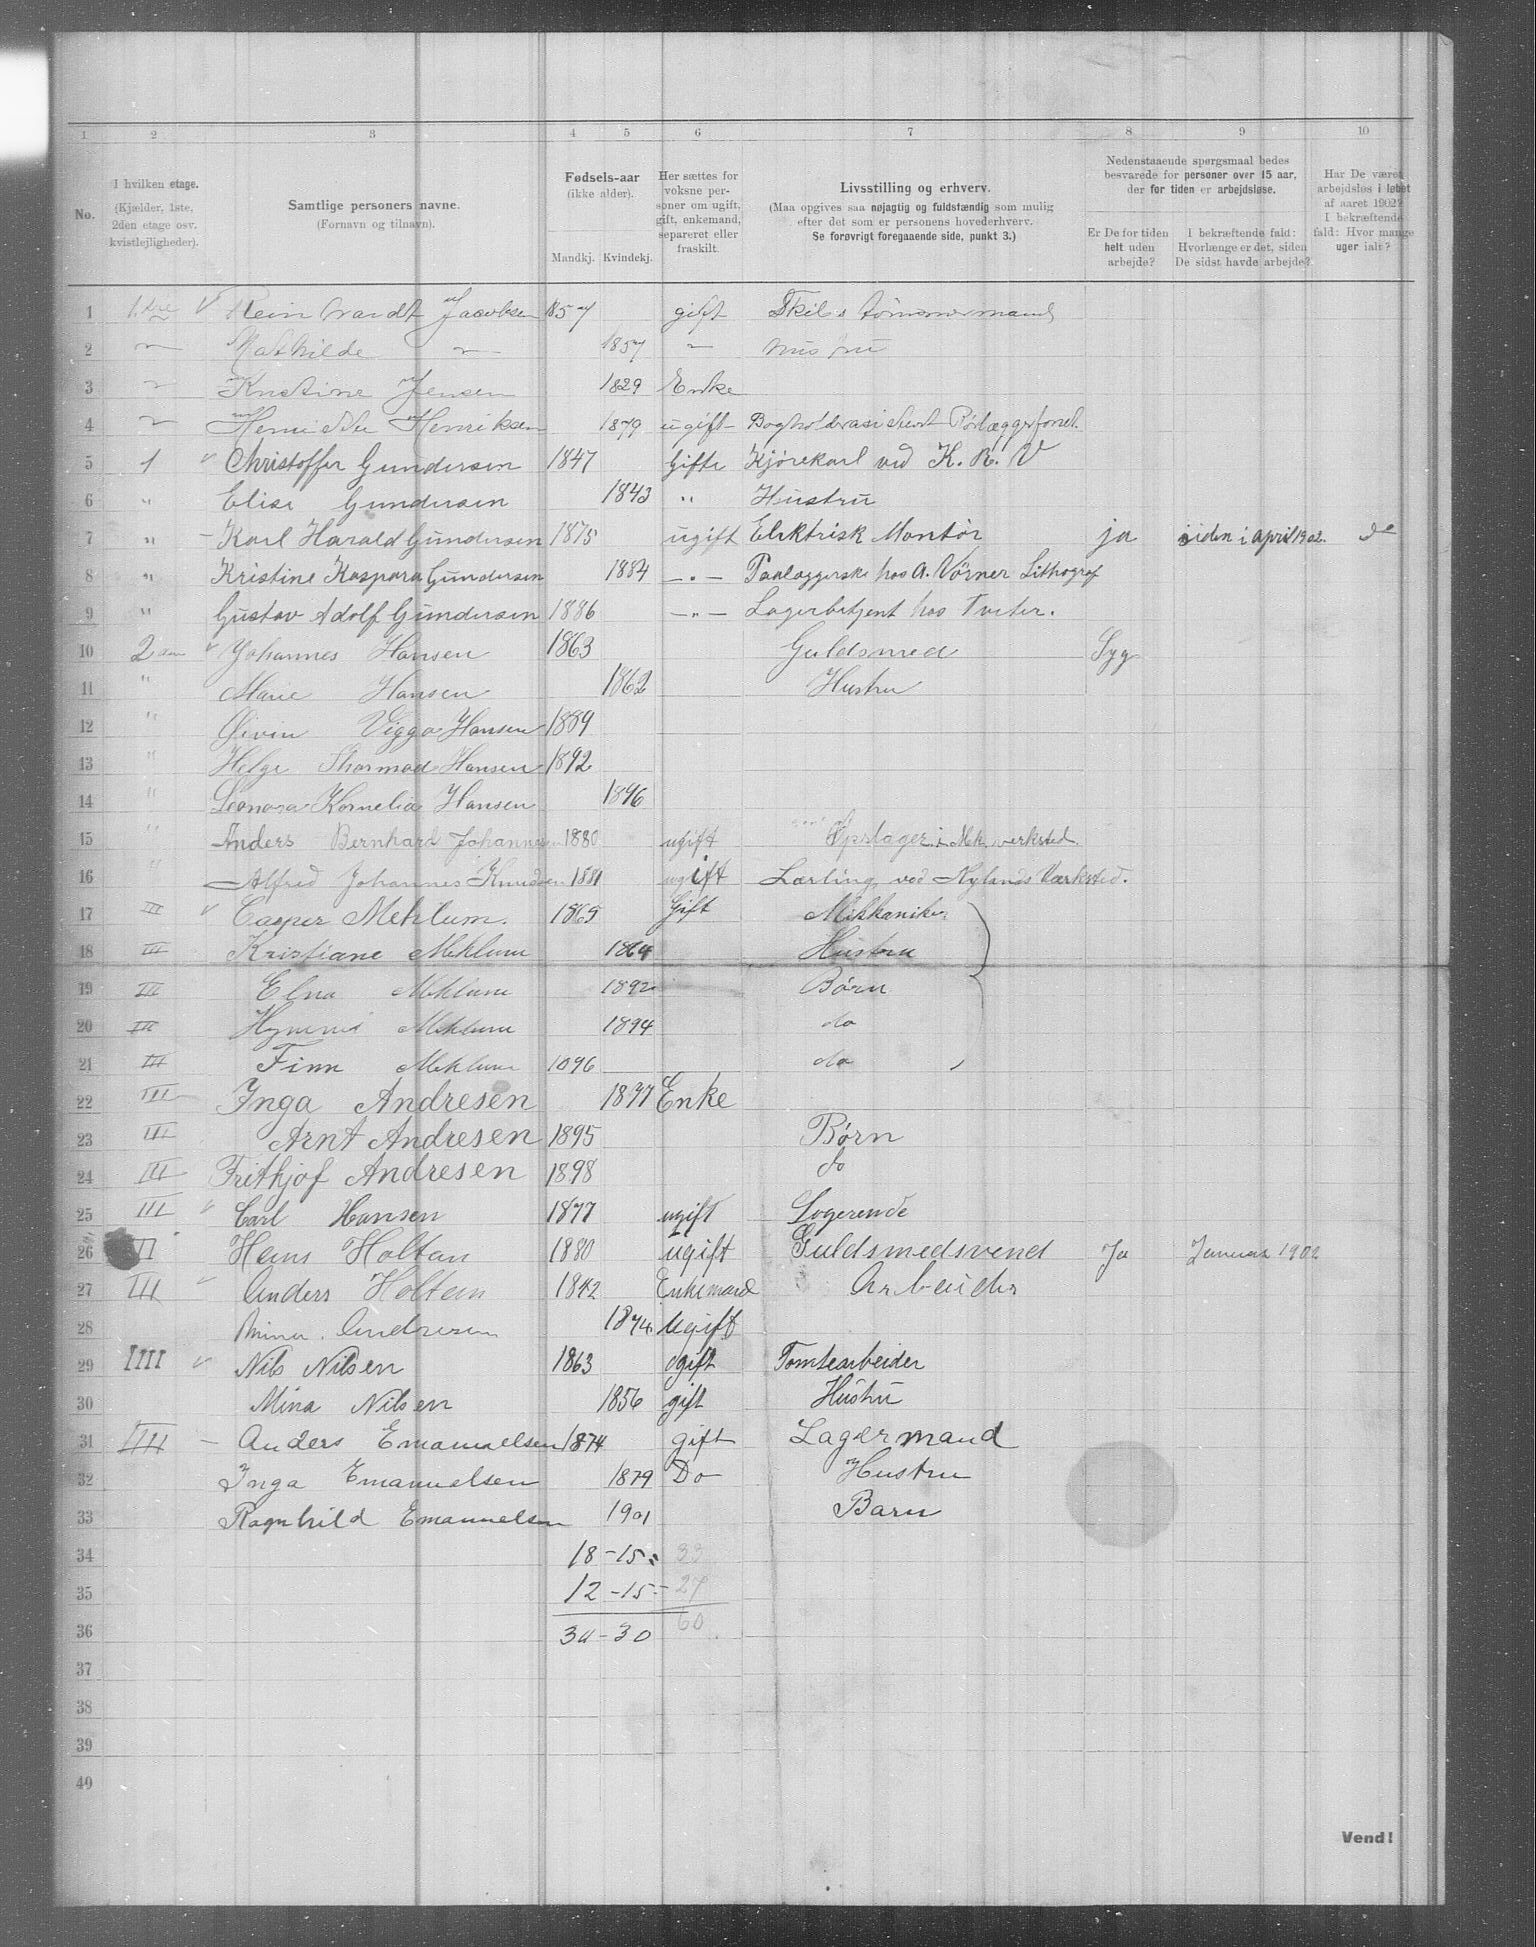 1 2 3 4 5 6 7 8 9 10
No.
I hvilken etage.
(Kjælder, 1ste, 2den etage osv. kvistlejligheder).
Samtlige personers navne.
(Fornavn og tilnavn).
Fødsels-aar
(ikke alder).
Mandkj. Kvindekj.
Her sættes for voksne personer om ugift, gift, enkemand, separeret eller fraskilt.
Livsstilling og erhverv.
(Maa opgives saa nøjagtig og fuldstændig som mulig efter det som er personens hovederhverv.
Se forøvrigt foregaaende side, punkt 3.)
Nedenstaaende spørgsmaal bedes besvarede for personer over 15 aar, der for tiden er arbejdsløse.
Er De for tiden helt uden arbejde?
I bekræftende fald: Hvorlænge er det, siden De sidst havde arbejde?
Har De været arbejdsløs i løbet af aaret 1902? I bekræftende fald: Hvor mange uger ialt?
1 Reinhardt Jacobsen 1857 gift Skibstømmermand
2 " Mathilde " 1857 " Hustru
3 " Kristine Jensen 1829 Enke
4 " Henriksen 1879 ugift
5 1 Christoffer Gundersen 1847 Gift Kjørekarl ved K. R. V
6 " Elise Gundersen 1843 " Hustru
7 " Karl Harald Gundersen 1875 ugift Elektrisk Montør ja siden i april 1902
8 " Kristine Kaspara Gundersen 1884 -"- Paalæggerske hos A. Vörner Lithograf
9 " Gustav Adolf Gundersen 1886 -"- Lagerbetjent hos Tveter.
10 2den Johannes Hansen 1863 Guldsmed Syg
11 " Marie Hansen 1862 Hustru
12 " Øivin Viggo Hansen 1889
13 " Helge Thormod Hansen 1892
14 " Leonora Kornelia Hansen 1896
15 " Anders Bernhard Johannesen 1880 ugift i Mek. verksted.
16 " Alfred Johannes Knudsen 1881 ugift Lærling ved Nylands Værksted.
17 III Casper Meklum 1865 Gift Mekkaniker
18 III Kristiane Meklum 1864 Hustru
19 III Elna Meklum 1892 Børn
20 III Meklum 1894 do
21 III Finn Meklum 1896 do
22 III Inga Andresen 1877 Enke
23 III Arnt Andresen 1895 Børn
24 III Frithjof Andresen 1898 do
25 III Carl Hansen 1877 ugift Logerende
26 VI Hans Holtan 1880 ugift Guldsmedsvend Ja Januar 1902
27 III Anders Holtan 1842 Enkemand Arbeider
28 Mina Andresen 1874 Ugift
29 IIII Nils Nilsen 1863 gift Tomtearbeider
30 Mina Nilsen 1856 gift Hustru
31 IIII - Anders Emanuelsen 1874 gift Lagermand
32 Inga Emanuelsen 1879 Do Hustru
33 Ragnhild Emanuelsen 1901 Barn
34 18-15= 33
35 12-15= 27
36 30-30 60
37
38
39
40
Vend!